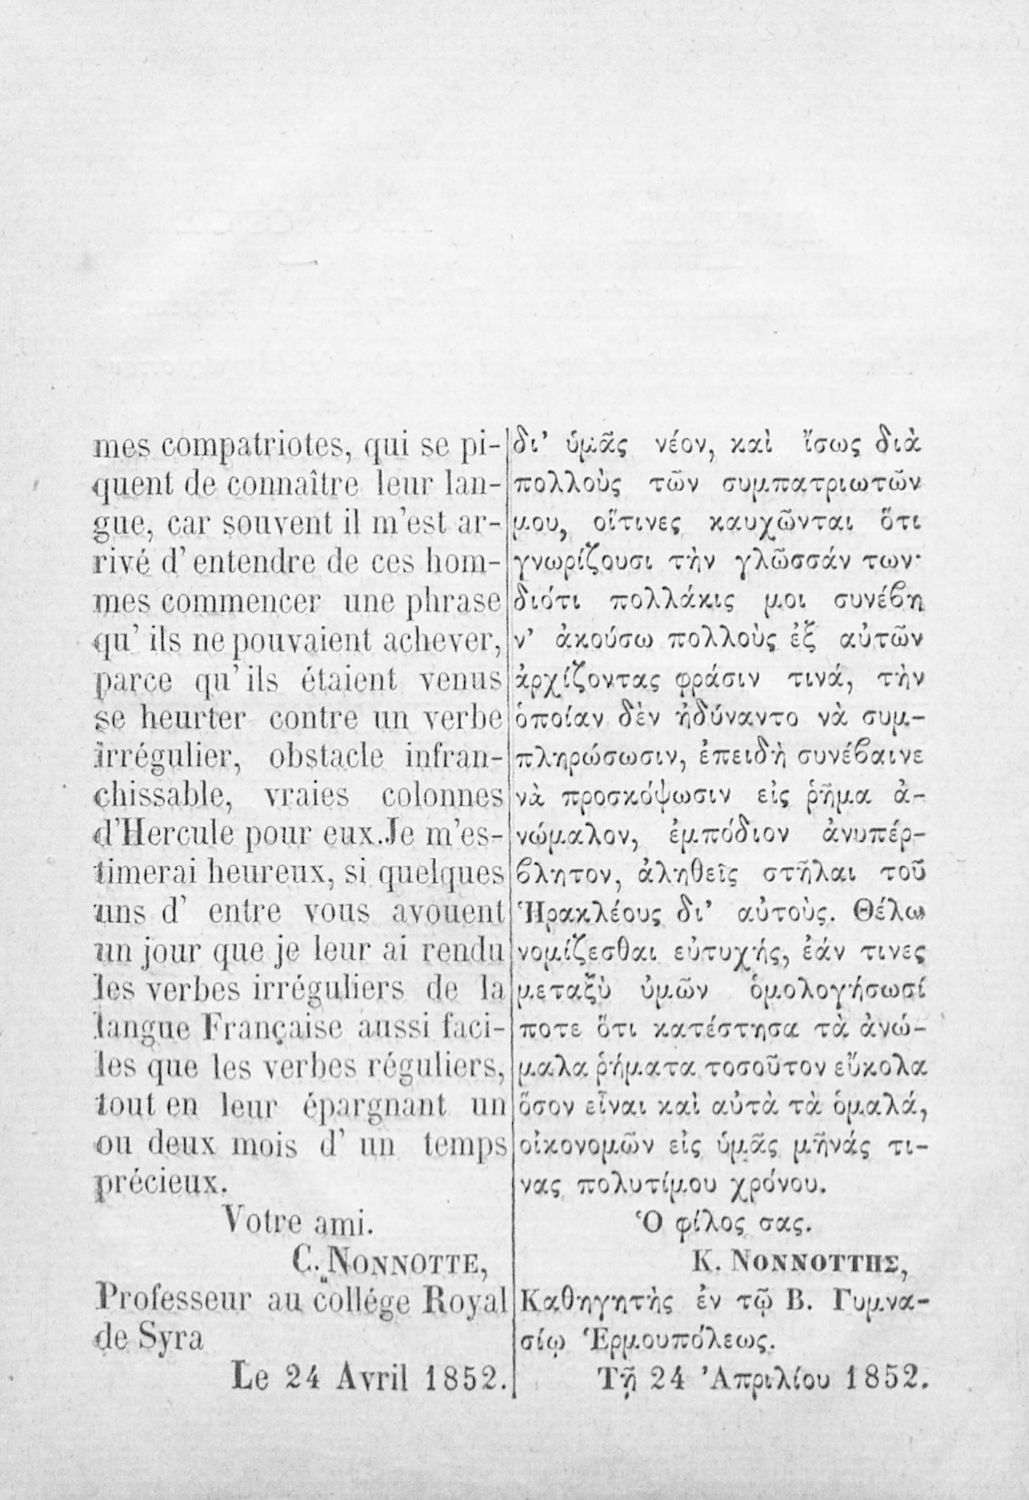 mes compatriotes, qui se pi-
quent de connaître leur lan-
gue, car souvent il m'est ar-
rivé d' entendre de ces hom-
mes commencer une phrase
qu' ils ne pouvaient achever,
parce qu' ils étaient venus
se heurter contre un verbe
irrégulier, obstacle infran-
chissable, vraies colonnes
d'Hercule pour eux. Je m'es-
timerai heureux, si quelques
uns d' entre vous avouent
un jour que je leur ai rendu
les verbes irréguliers de la
langue Française aussi faci-
les que les verbes réguliers,
tout en leur épargnant un
ou deux mois d' un temps
précieux.
Votre ami.
C. NONNOTTE,
Professeur au collége Royal
de Syra
Le 24 Avril 1852.
δι' ὑμᾶς νέον, καὶ ἴσως διὰ
πολλοὺς τῶν συμπατριωτῶν
μου, οἵτινες καυχῶνται ὅτι
γνωρίζουσι τὴν γλῶσσάν των·
διότι πολλάκις μοι συνέϐη
ν' ἀκούσω πολλοὺς ἐξ αὐτῶν
ἀρχίζοντας φράσιν τινά, τὴν
ὁποίαν δὲν ἠδύναντο νὰ συμ-
πληρώσωσιν, ἐπειδὴ συνέϐαινε
νὰ προσκόψωσιν εἰς ῥῆμα ἀ-
νώμαλον, ἐμπόδιον ἀνυπέρ-
ϐλητον, ἀληθεῖς στῆλαι τοῦ
Ἡρακλέους δι' αὐτοὺς. Θέλω
νομίζεσθαι εὐτυχής, ἐάν τινες
μεταξὺ ὑμῶν ὁμολογήσωσί
ποτε ὅτι κατέστησα τὰ ἀνώ-
μαλα ῥήματα τοσοῦτον εὔκολα
ὅσον εἶναι καὶ αὐτὰ τὰ ὁμαλά,
οἰκονομῶν εἰς ὑμᾶς μῆνάς τι-
νας πολυτίμου χρόνου.
Ὁ φίλος σας.
Κ. ΝΟΝΝΟΤΤΗΣ,
Καθηγητὴς ἐν τῷ Β. Γυμνα-
σίῳ Ἑρμουπόλεως.
Τῇ 24 Ἀπριλίου 1852.